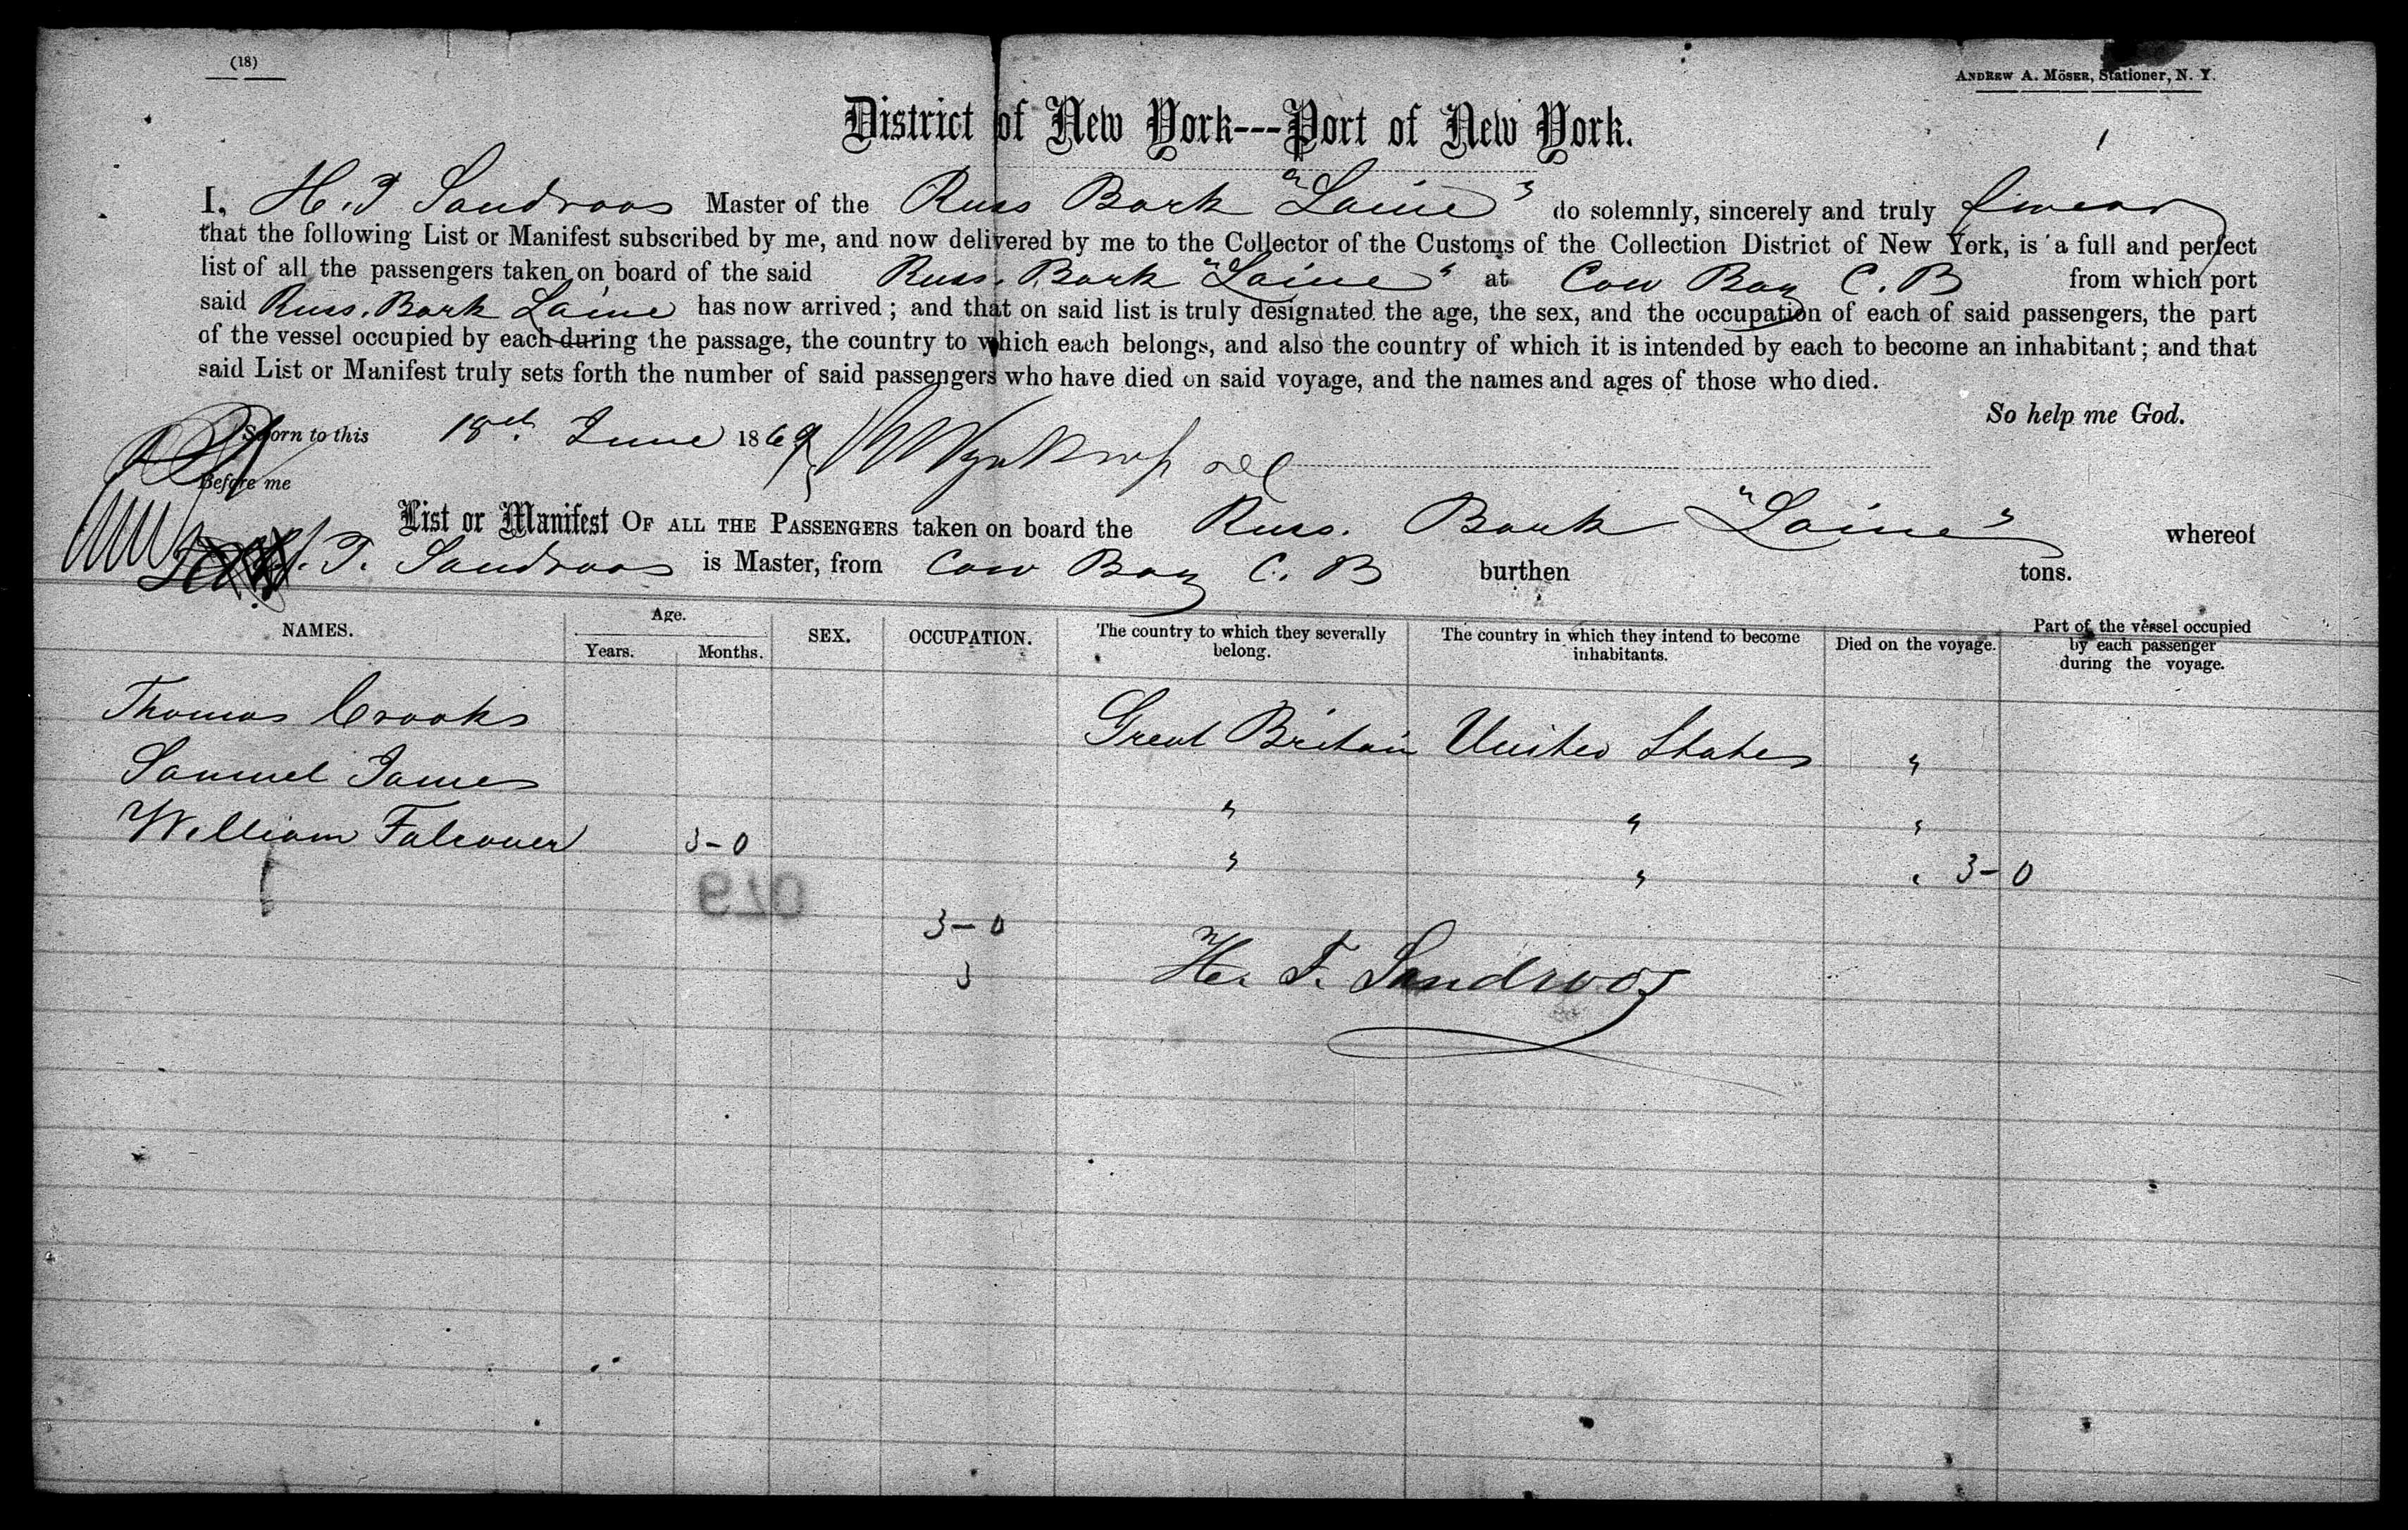 (18)
ANDREW A. MÖSER, Stationer, N. Y.
District of New York---Port of New York.
1
I, H. T Sandroos Master of the Russ Bark "Laine" do solemnly, sincerely and truly swear
that the following List or Manifest subscribed by me, and now delivered by me to the Collector of the Customs of the Collection District of New York, is a full and perfect
list of all the passengers taken on board of the said Russ. Bark "Laine" at Cow Bay C. B from which port
said Russ. Bark Laine has now arrived; and that on said list is truly designated the age, the sex, and the occupation of each of said passengers, the part
of the vessel occupied by each during the passage, the country to which each belongs, and also the country of which it is intended by each to become an inhabitant; and that
said List or Manifest truly sets forth the number of said passengers who have died on said voyage, and the names and ages of those who died.
So help me God.
Sworn to this 18th June 1869
Before me
List or Manifest OF ALL THE PASSENGERS taken on board the Russ. Bark "Laine" whereof
H. T. Sandroos is Master, from Cow Bay C. B burthen tons.
NAMES. Age. Years. Months. SEX. OCCUPATION. The country to which they severally belong. The country in which they intend to become inhabitants. Died on the voyage. Part of the vessel occupied by each passenger during the voyage.
Thomas Crooks Great Britain United States "
Samuel James " " "
William Falconer 3-0 " " " 3-0
079
3-0
3
He. T. Sandroos